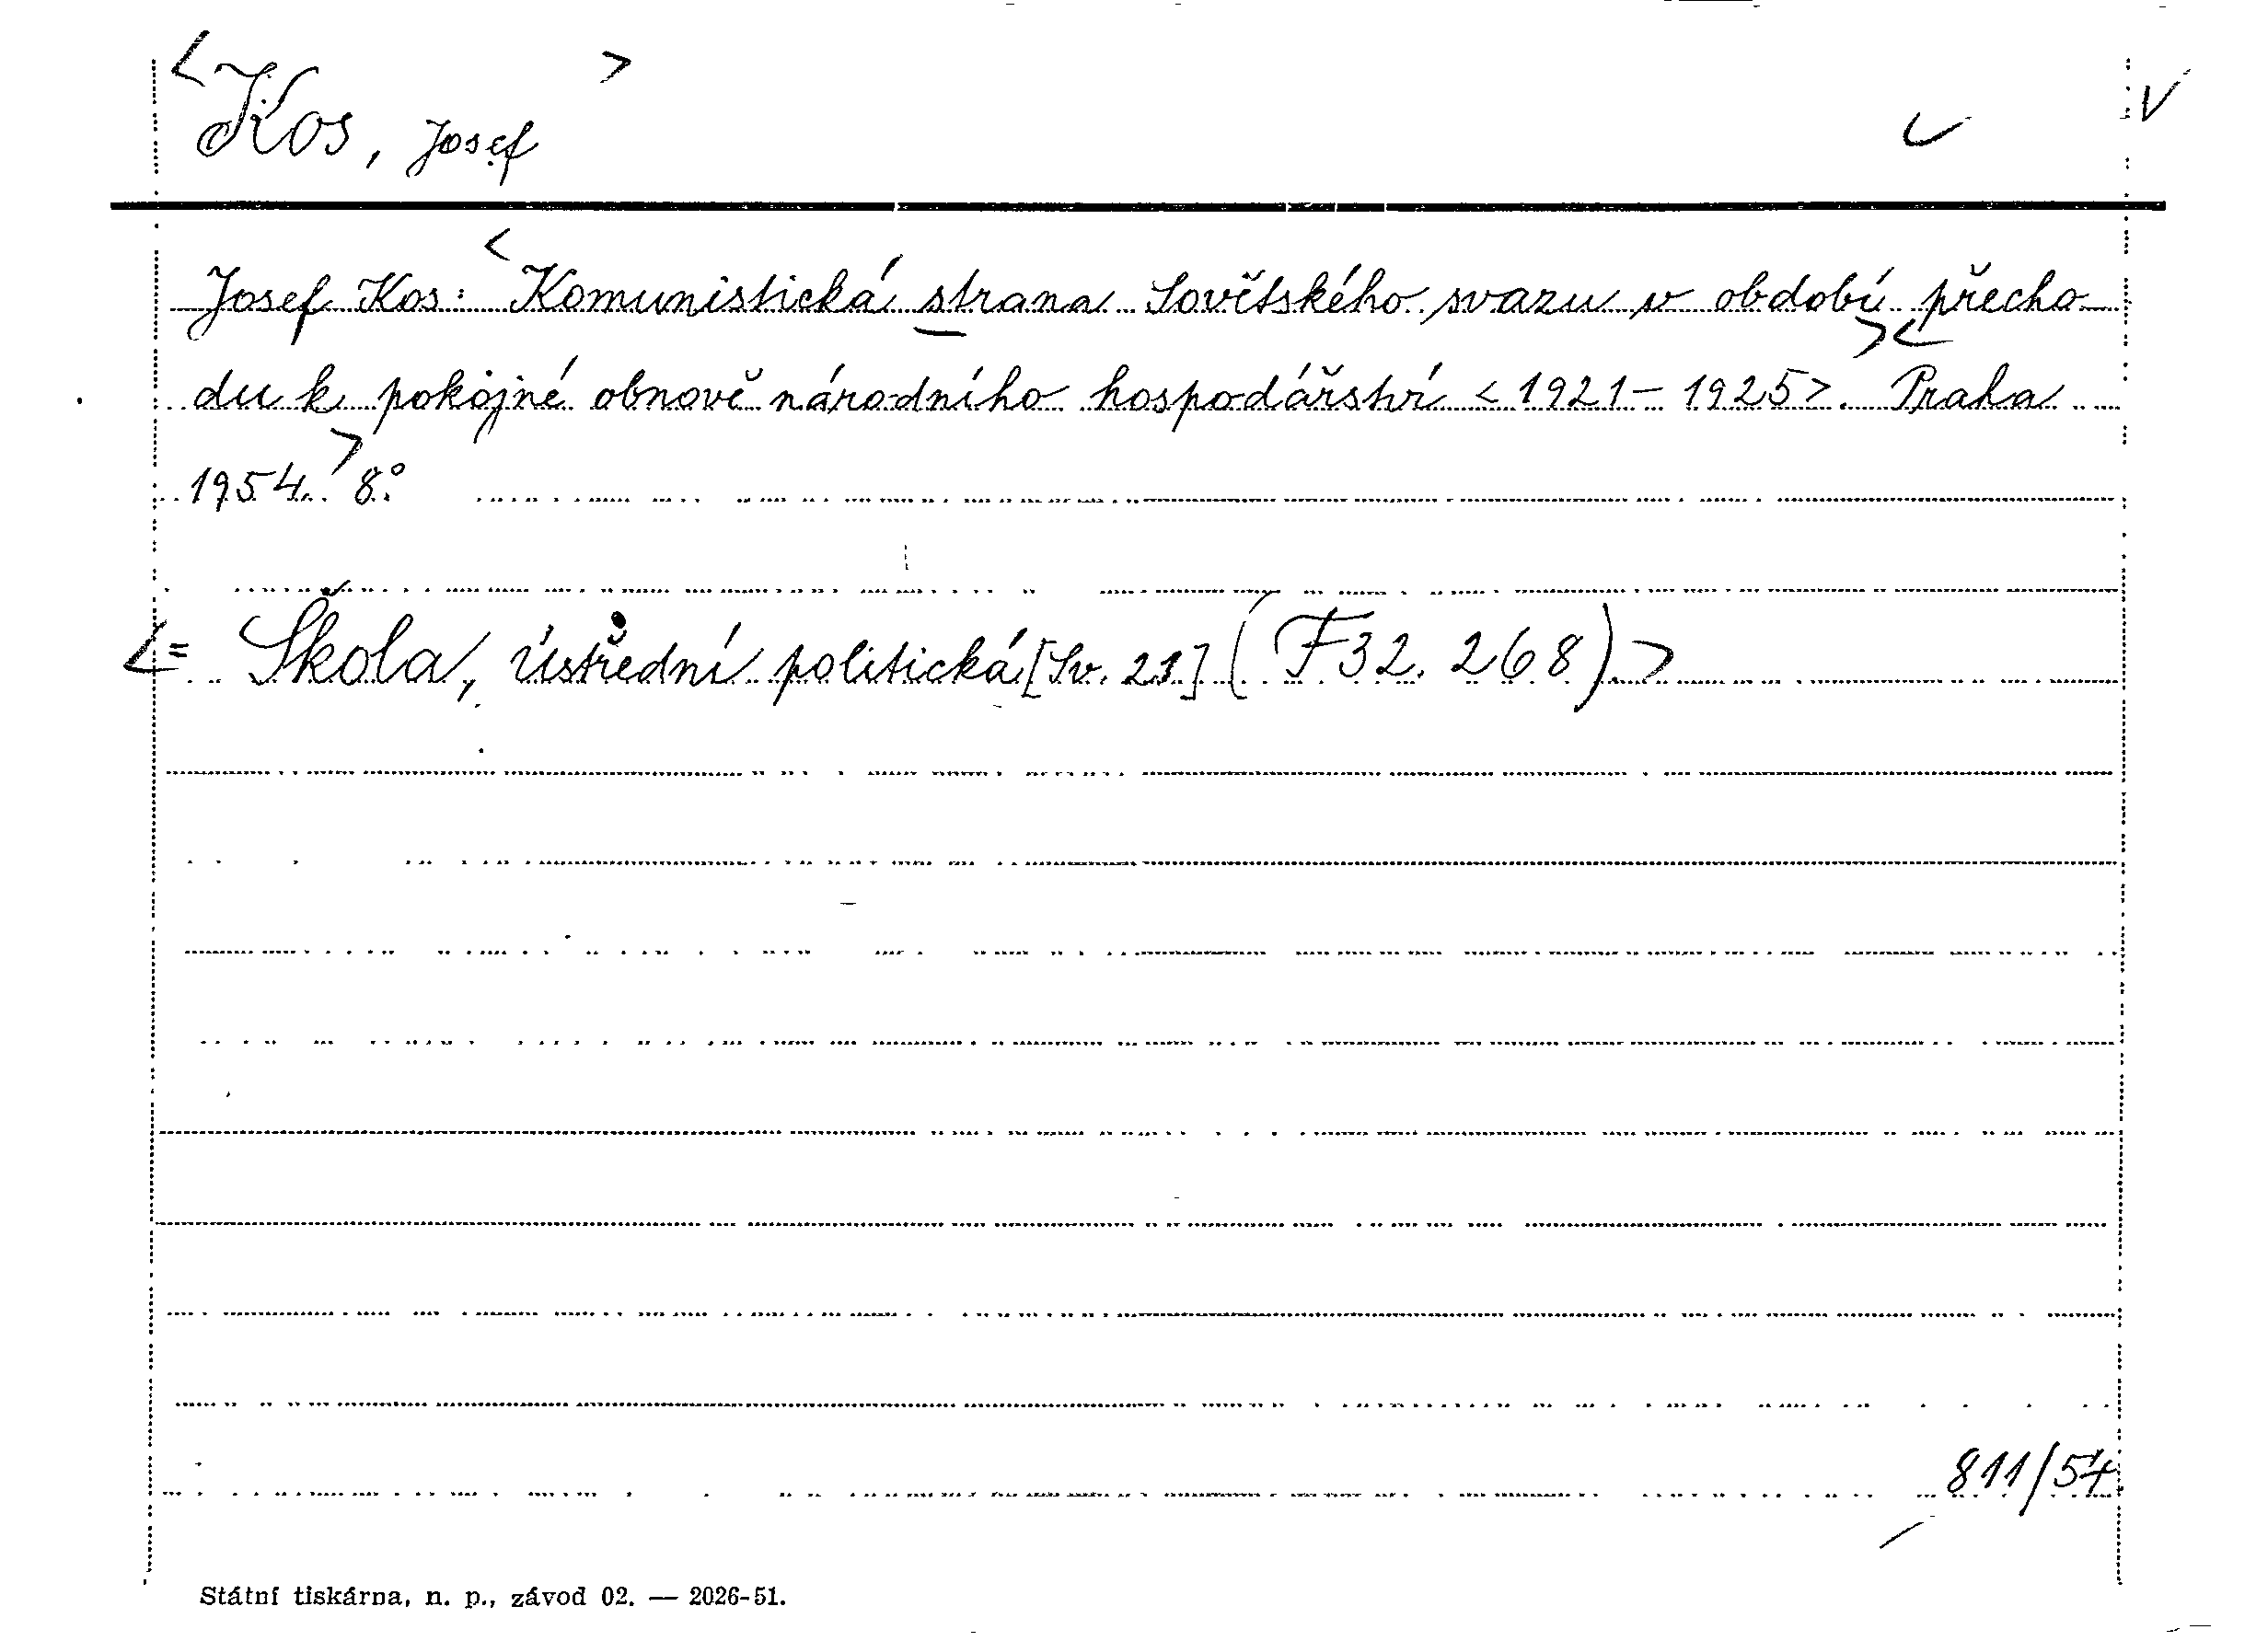 <Kos, Josef>
Josef Kos: <Komunistická strana Sovětského svazu v období přecho-
du k pokojné obnově národního hospodářství <1921-1925>. ><Praha
1954.> 8°
<= Škola, Ústřední politická [Sv. 21] (F 32.268)>
811/54
Státní tiskárna, n. p., závod 02. — 2026-51.